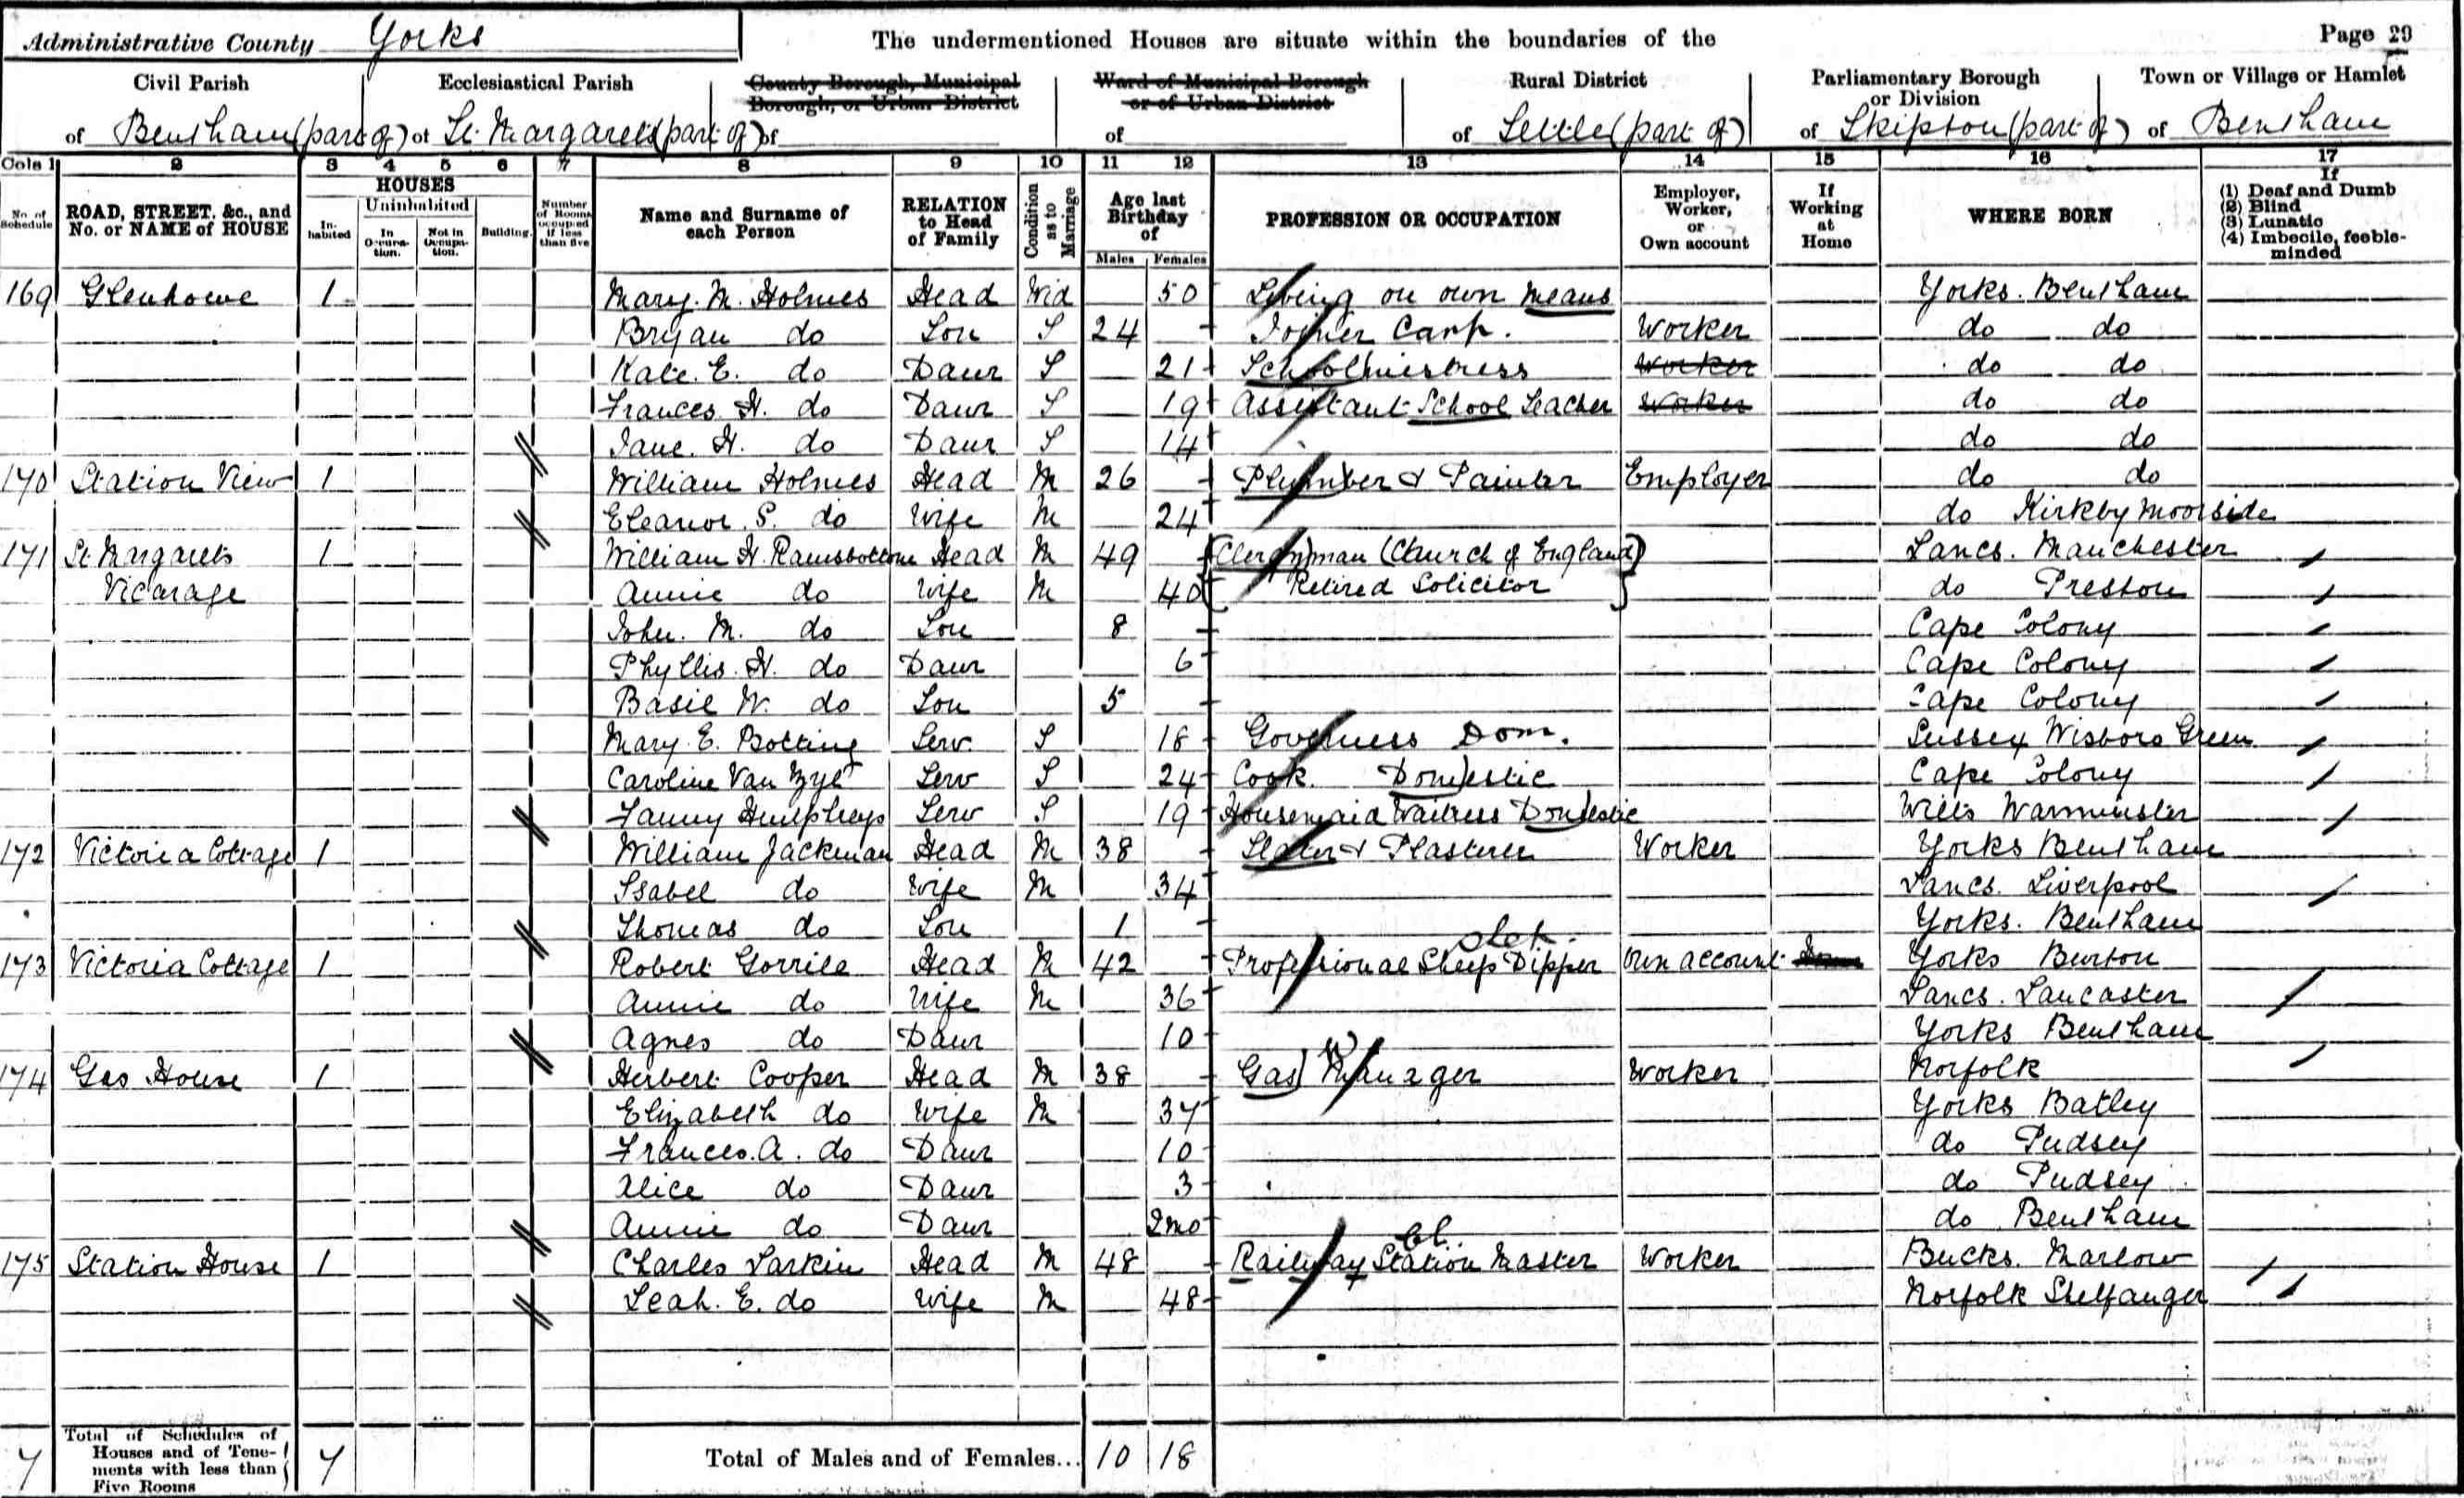 Administrative County Yorks
The undermentioned Houses are situate within the boundaries of the
Page 29
Civil Parish
of Bentham (part of)
Ecclesiastical Parish
of St. Margarets (part of)
County Borough, Municipal Borough, or Urban District
of
Ward of Municipal Borough or of Urban District
of
Rural District
of Settle (part of)
Parliamentary Borough or Division
of Skipton (part of)
Town or Village or Hamlet
of Bentham
Cols 1 2 3 4 5 6 7 8 9 10 11 12 13 14 15 16 17
No. of Schedule
ROAD, STREET, &c., and No. or NAME of HOUSE
HOUSES
In-habited
Uninhabited
In Occupa-tion.
Not in Occupa-tion.
Building.
Number of Rooms occupied if less than five
Name and Surname of each Person
RELATION to Head of Family
Condition as to Marriage
Age last Birthday of
Males Females
PROFESSION OR OCCUPATION
Employer, Worker, or Own account
If Working at Home
WHERE BORN
If
(1) Deaf and Dumb
(2) Blind
(3) Lunatic
(4) Imbecile, feeble-minded
169 Glenhowe 1 Mary. M. Holmes Head Wid 50 Living on own means Yorks. Bentham
Bryan do Son S 24 Joiner Carp. Worker do do
Kate. E. do Daur S 21 Schoolmistress Worker do do
Frances. H. do Daur S 19 Assistant School Teacher Worker do do
Jane. H. do Daur S 14 do do
170 Station View 1 William Holmes Head M 26 Plumber & Painter Employer do do
Eleanor. S. do Wife M 24 do Kirkby Moorside
171 St Margarets 1 William H. Ramsbottom Head M 49 Clergyman (Church of England) Lancs. Manchester
Vicarage Annie do Wife M 40 Retired Solicitor do Preston
John. M. do Son 8 Cape Colony
Phyllis. H. do Daur 6 Cape Colony
Basil W. do Son 5 Cape Colony
Mary. E. Botting Serv. S 18 Governess Dom. Sussex Wisboro Green
Caroline Van Zyl Serv S 24 Cook Domestic Cape Colony
Fanny Humphreys Serv S 19 Housemaid Waitress Domestic Wilts Warminster
172 Victoria Cottage 1 William Jackman Head M 38 Slater & Plasterer Worker Yorks Bentham
Isabel do Wife M 34 Lancs. Liverpool
Thomas do Son 1 Yorks. Bentham
173 Victoria Cottage 1 Robert Gorrill Head M 42 Professional Sheep Dipper Own account Yorks Burton
Annie do Wife M 36 Lancs. Lancaster
Agnes do Daur 10 Yorks Bentham
174 Gas House 1 Herbert Cooper Head M 38 Gas W Manager Worker Norfolk
Elizabeth do Wife M 37 Yorks Batley
Frances. A. do Daur 10 do Pudsey
Alice do Daur 3 do Pudsey
Annie do Daur 2mo do Bentham
175 Station House 1 Charles Larkin Head M 48 Railway Station Master Worker Bucks. Marlow
Leah. E. do Wife M 48 Norfolk Shelfanger
7 Total of Schedules of Houses and of Tene-ments with less than Five Rooms 7 Total of Males and of Females... 10 18